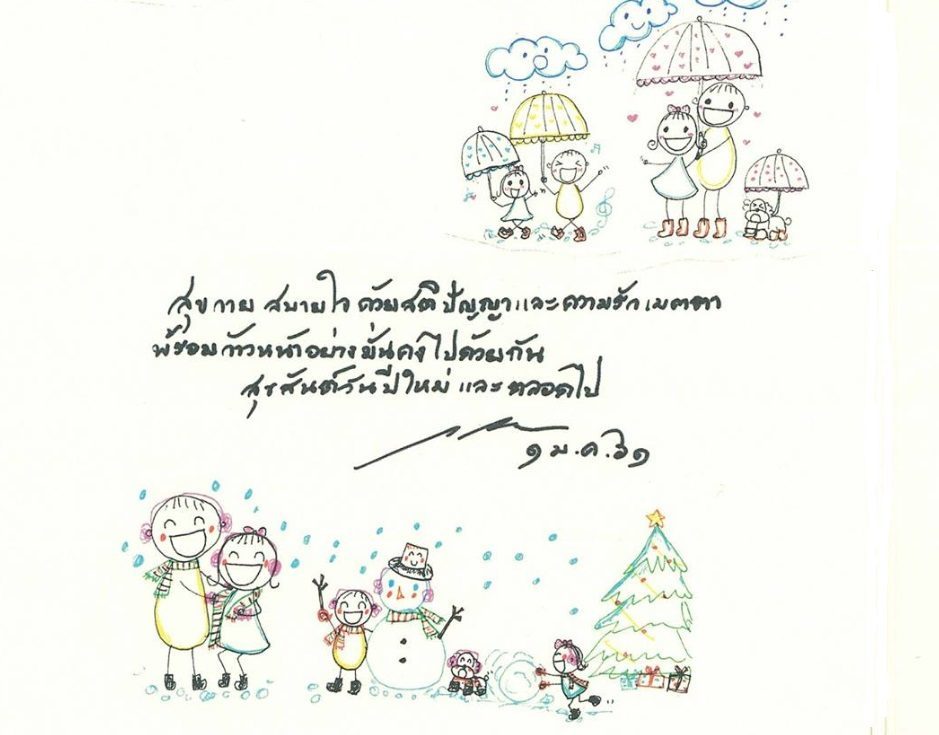 สุข กาย สบายใจ ด้วยสติ ปัญญา และ ความรัก เมตตา
พร้อม ก้าวหน้าอย่างมั่นคง ไปด้วยกัน
สุขสันต์วันปีใหม่ และ ตลอดไป
๑ ม.ค. ๖๑